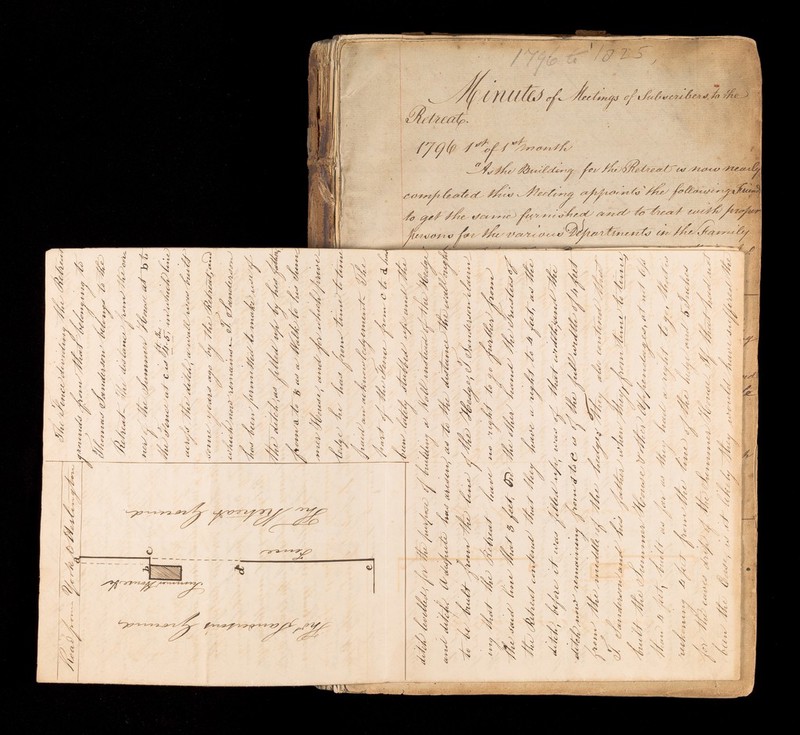 1796 to 1825,
Minutes of Meetings of Subscribers to the
Retreat.
1796 1st of 1st month
"As the Building for the Retreat is now nearly
compleated this Meeting appoints the following Friends
to get the same furnished and to treat with proper
persons for the various Departments in the Family
The Fence dividing the Retreat
grounds from that belonging to
Thomas Sanderson belongs to the
Retreat. The distance from the
of the Summer House at b to
the Fence at c is
the ditch; a wall was built
some years ago by the Retreat, and
which now remains. T Sanderson
has been permitted to make use of
the ditch, as filled up by his father
from a to b as a Walk to his Summer
House, and for which
he has from time to time
paid an acknowledgement. The
part of the Fence from c to d has
been lately stubbed up and the
ditch levelled for the purpose of building a Wall instead of the Hedge
and ditch. A dispute has arisen, as to the distance the wall ought
to be built from the line of the Hedge; T Sanderson claim
ing that the Retreat have no right to go further from
the said line than 3 feet. On the other hand the Trustees of
the Retreat contend that they have a right to 4 feet, as the
ditch, before it was filled up, was of that width; and the
ditch now remaining from d to e is of the full width of 4 feet
from the middle of the hedge. They also contend that
T Sanderson and his father when they from time to time
built the Summer House & other Appendages, did not
them 4 feet, built as far as they had a right to go, that is
reckoning 4 feet from the line of the hedge and 5 Inches
for the eaves drip of the Summer House. If that had not
been the Case, is it likely they would have suffered the
Road from York to Heslington
The Retreat Ground
Fence
Summer House &c
Thos Sanderson's Ground
a
b
c
d
e